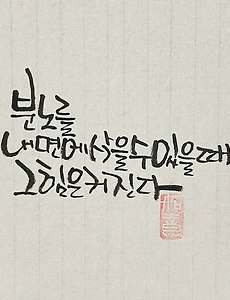 분노를
내면에 삭을 수 있을 때
그 힘은 커진다